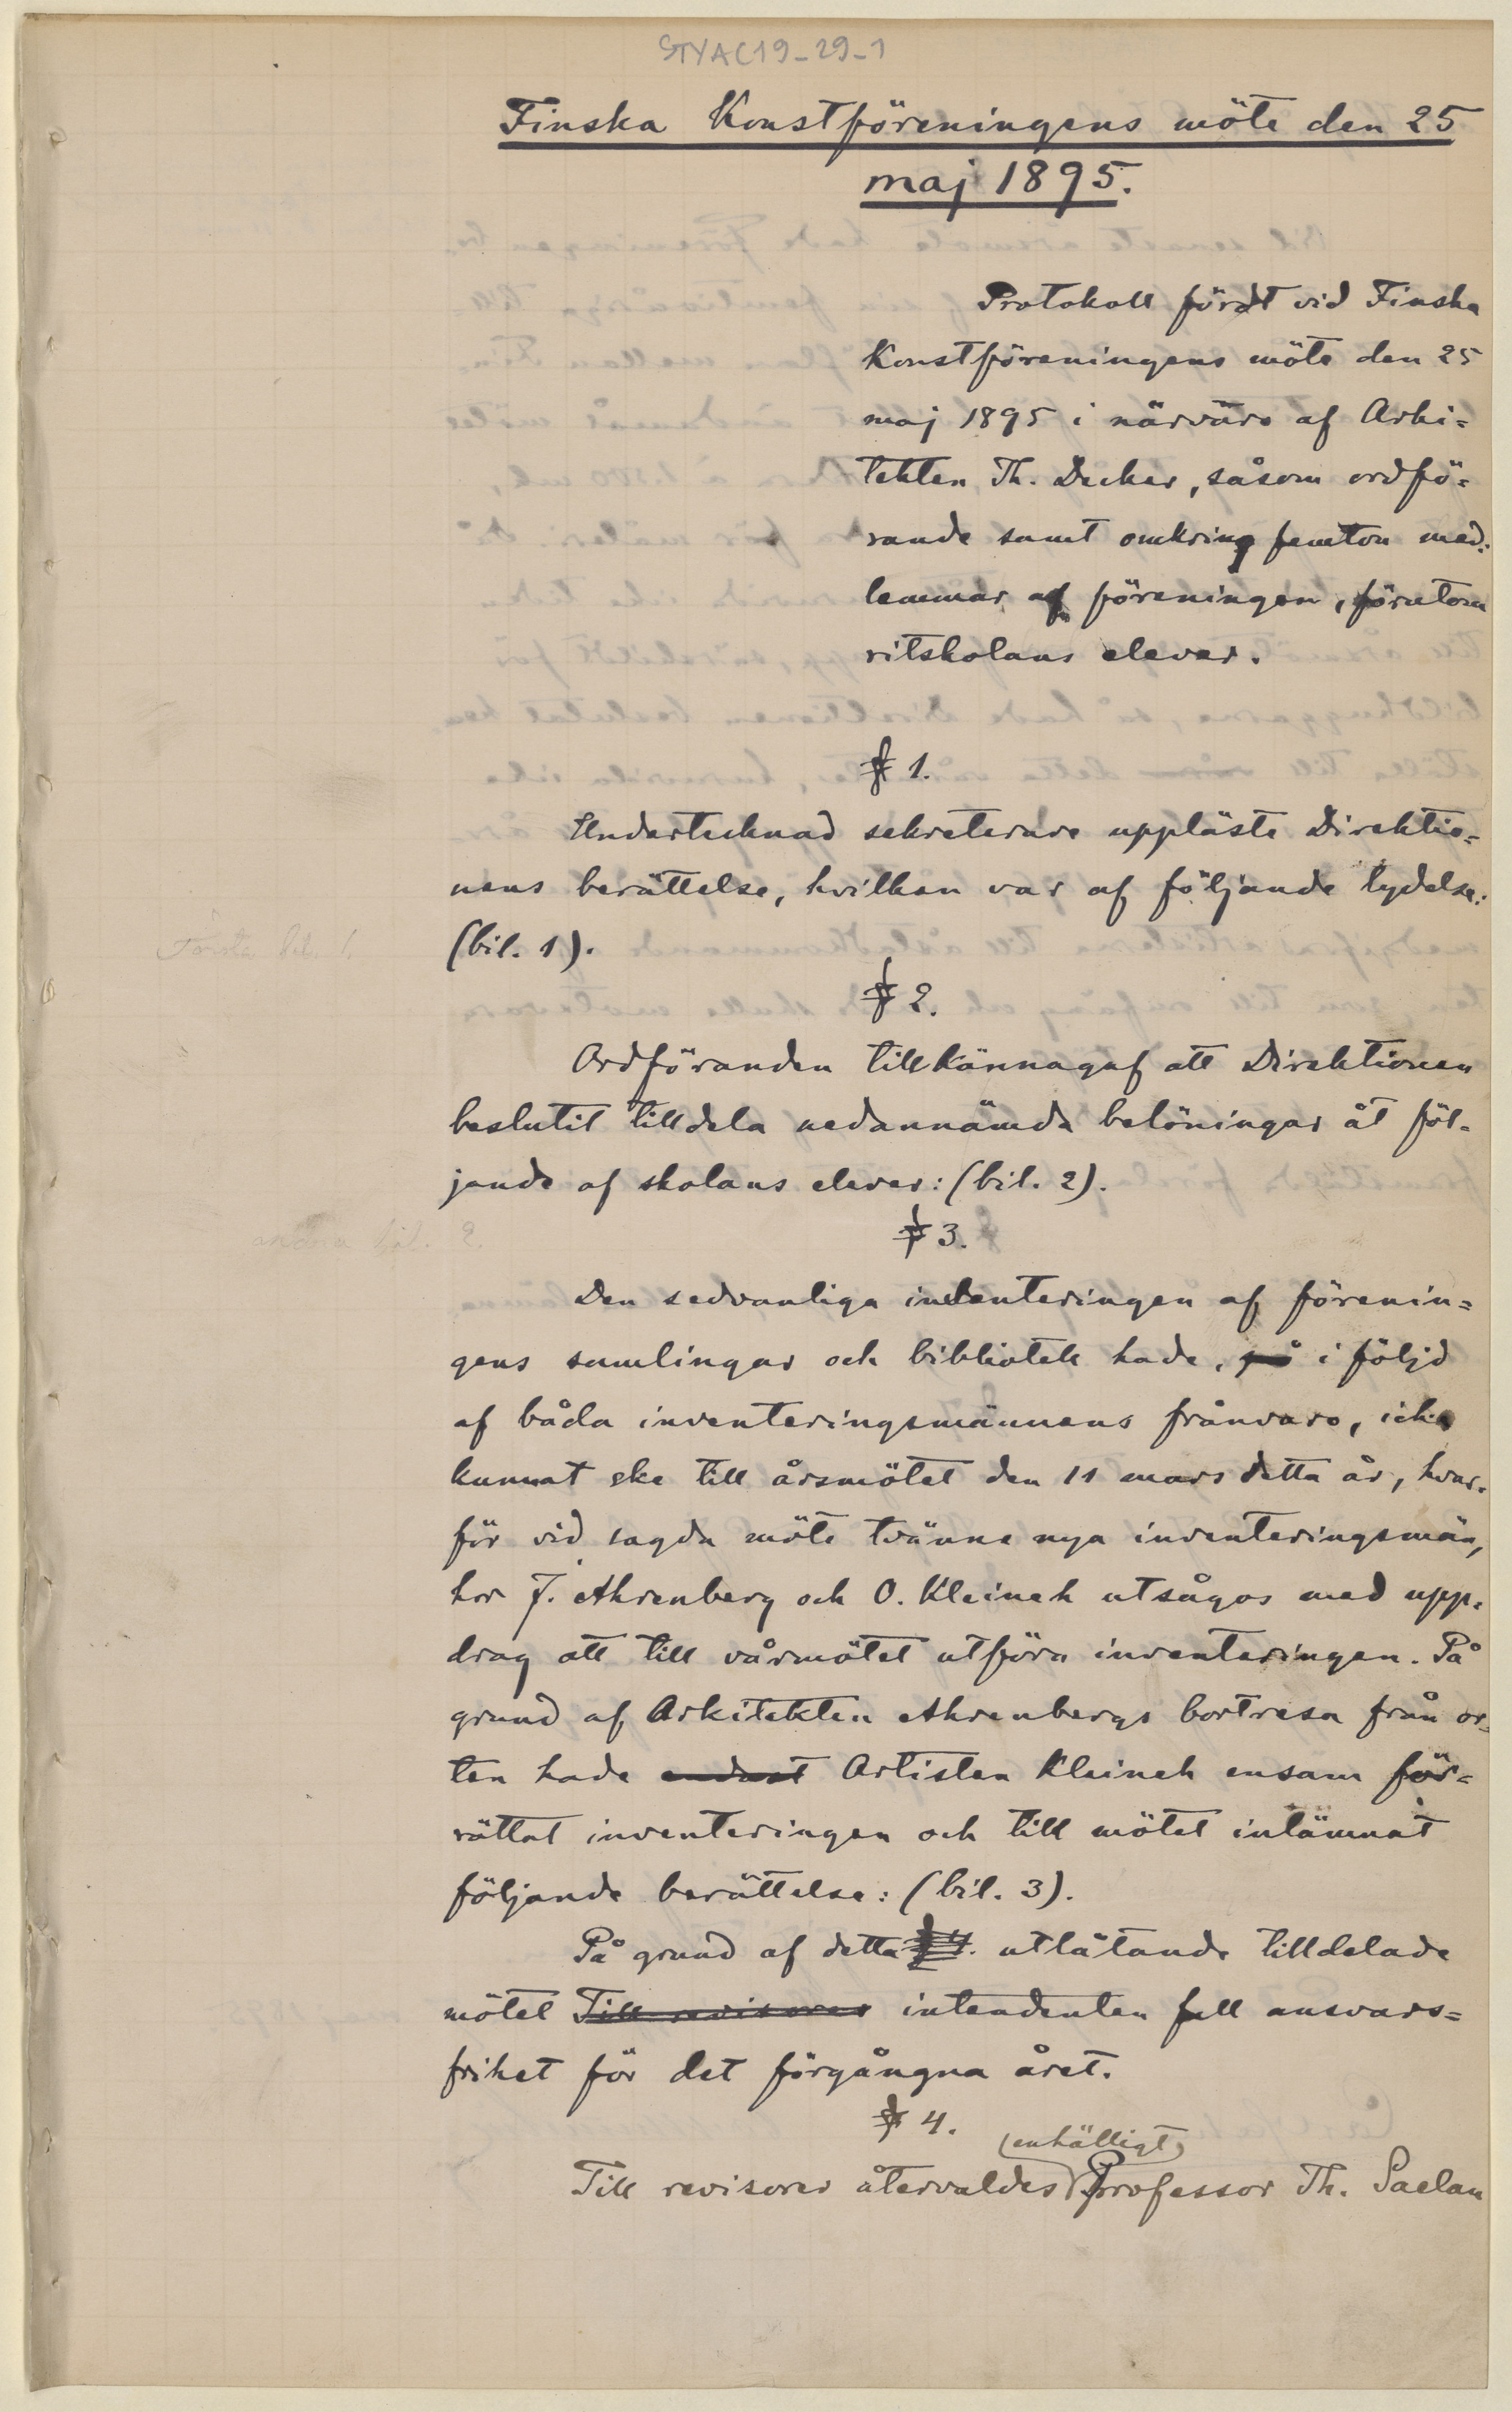 STYAC19-29-1
Finska Konstföreningens möte den 25
maj 1895.
Protokoll fördt vid Finska
Konstföreningens möte den 25
maj 1895 i närvaro af Arki=
tekten Th. Decker, såsom ordfö=
rande samt omkring femton med=
lemmar af föreningen, förutom
ritskolans elever.
§ 1.
Undertecknad sekreterare uppläste Direktio=
nens berättelse, hvilken var af följande lydelse:
Första bil. 1.
(bil. 1).
§ 2.
Ordföranden tillkännagaf att Direktionen
beslutit tilldela nedannämda belöningar åt föl=
jande af skolans elever: (bil. 2).
andra bil. 2.
§ 3.
Den sedvanliga inventeringen af förenin=
gens samlingar och bibliotek hade, på i följd
af båda inventeringsmännens frånvaro, icke
kunnat ske till årsmötet den 11 mars detta år, hvar=
för vid sagda möte tvänne nya inventeringsmän,
hrr J. Ahrenberg och O. Kleineh utsågos med upp=
drag att till vårmötet utföra inventeringen. På
grund af Arkitekten Ahrenbergs bortresa från or=
ten hade endast Artisten Kleineh ensam för=
rättat inventeringen och till mötet inlämnat
följande berättelse: (bil. 3).
På grund af detta § 4. utlåtande tilldelade
mötet Till revisorer intendenten full ansvars=
frihet för det förgångna året.
§ 4.
enhälligt
Till revisorer återvaldes Professor Th. Saelan